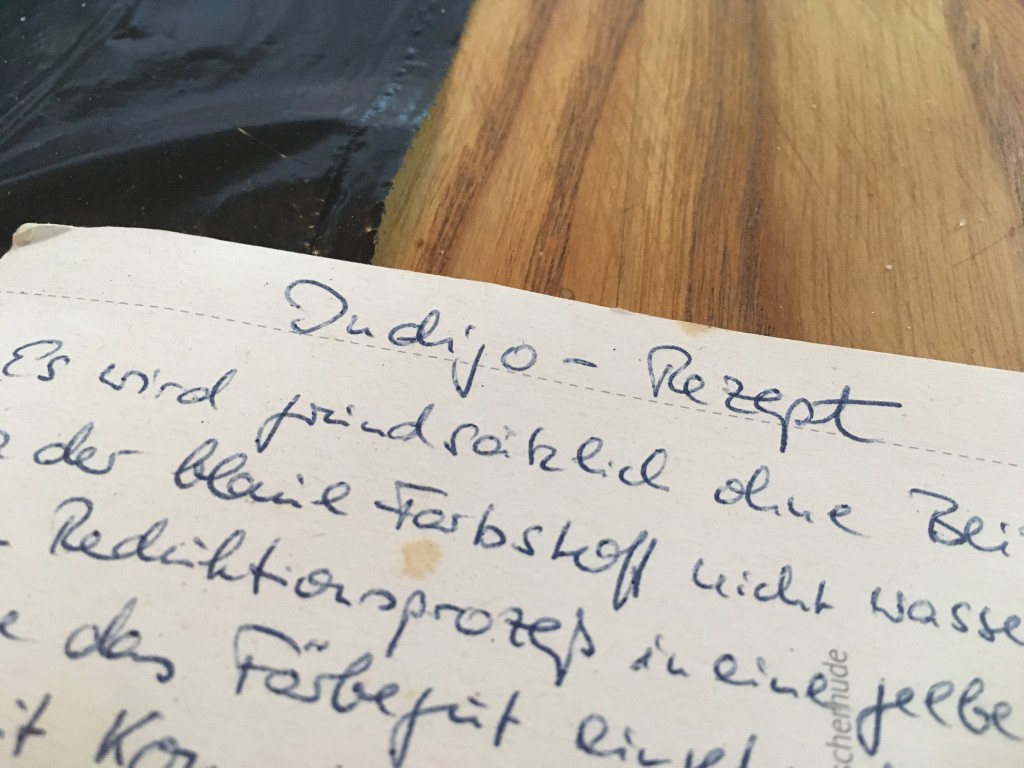 Indigo - Rezept
Es wird grundsätzlich ohne Bei
der blaue Farbstoff nicht wasse
Reduktionsprozeß in eine gelbe
das Färbegut einge
scherhude